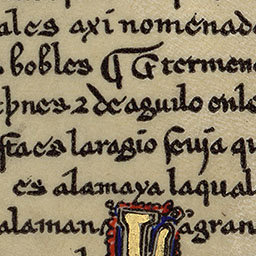 ales axi nomenada
bobles ¶ E termen
hnes 2 de aguilo en le
sta es la ragio seuja qu
es alamaya laqual
alaman L agran